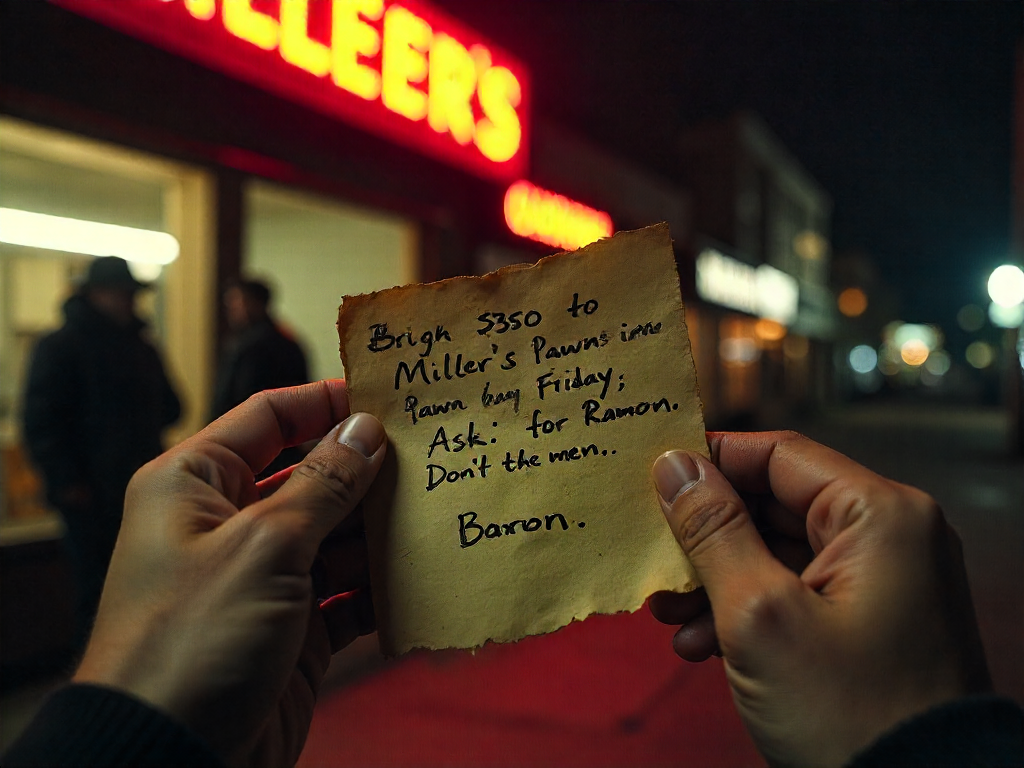 LLEER'S
Brigh $350 to
Miller's Pawns
Pawn Friday;
Ask: for Ramon.
Don't the men..
Baron.